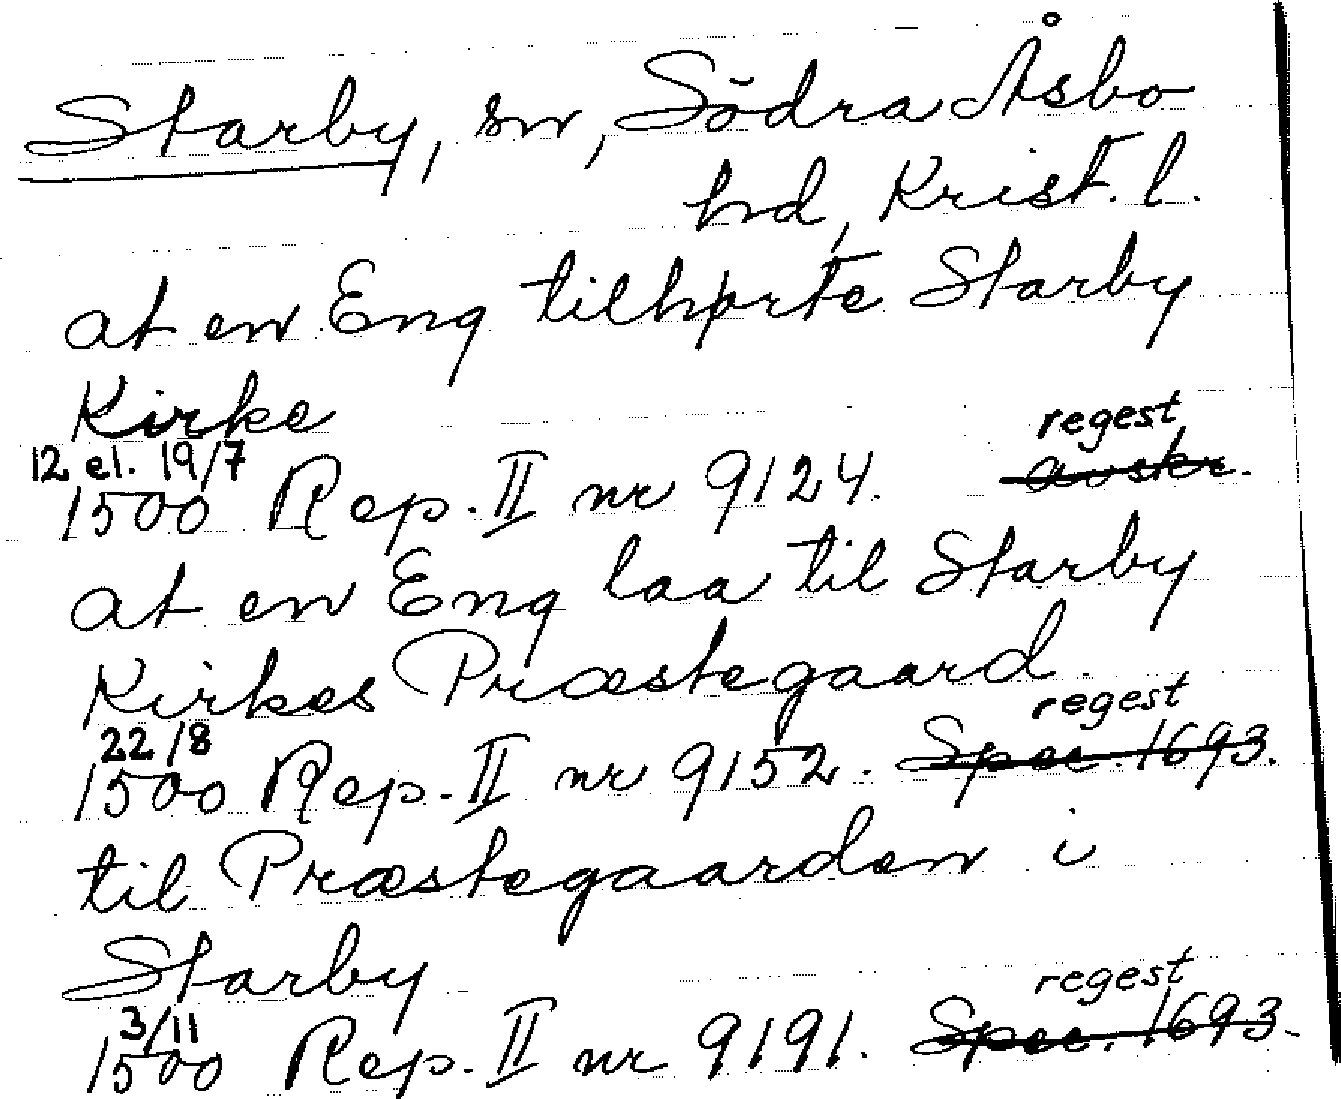 Starby, sn, Södra Åsbo
hd, Krist. l.
at en Eng tilhørte Starby
Kirke
regest
12 el. 19/7
avskr.
1500 Rep. II nr 9124.
at en Eng laa til Starby
Kirkes Præstegaard.
regest
22/8
1500 Rep. II nr 9152. Spec. 1693.
til Præstegaarden i
Starby
regest
3/11
1500 Rep. II nr 9191. Spec. 1693.